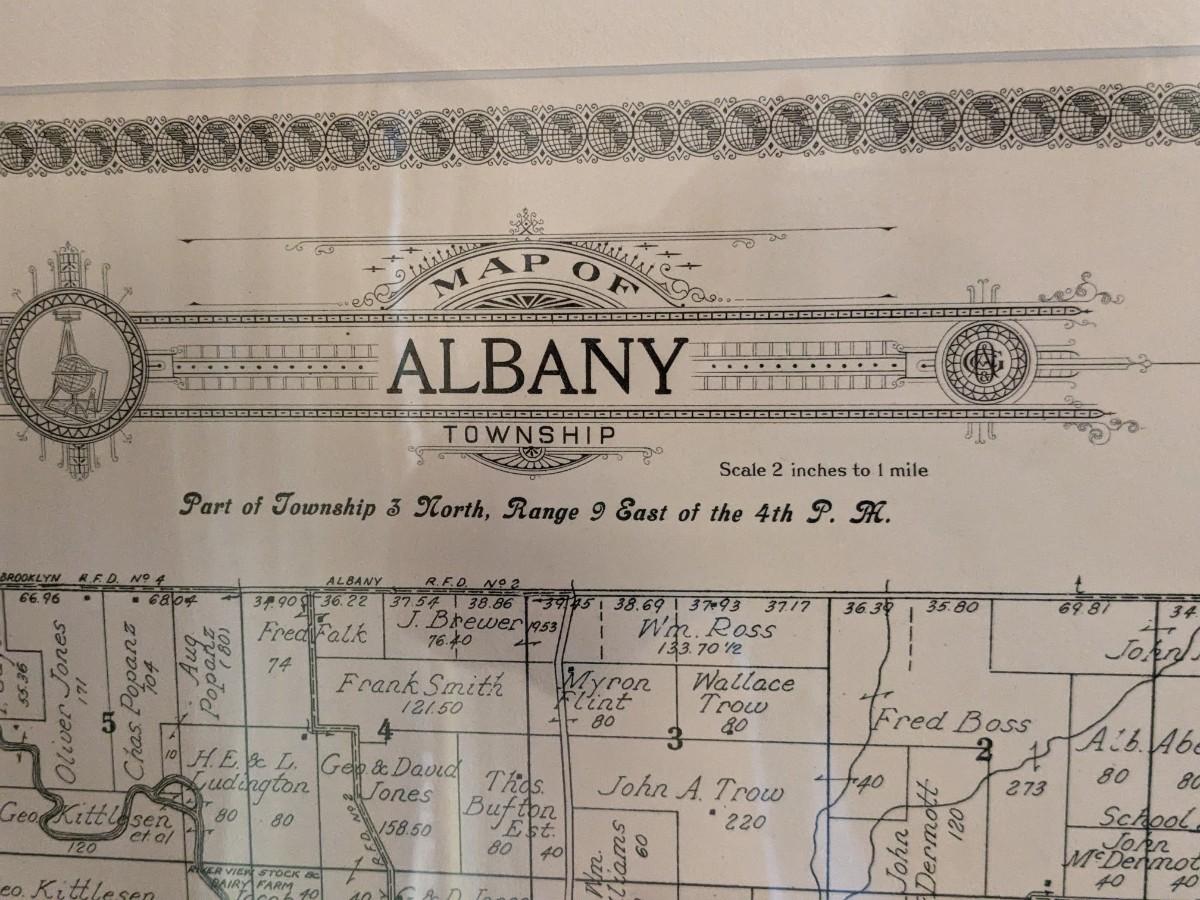 MAP OF
ALBANY
TOWNSHIP
Scale 2 inches to 1 mile
Part of Township 3 North, Range 9 East of the 4th P. M.
BROOKLYN R.F.D. No 4
ALBANY R.F.D. No 2
66.96
68.04
34.90
36.22
37.54
38.86
39.45
38.69
37.93
37.17
36.39
35.80
69.81
34.
55.36
Oliver Jones
171
5
Chas. Popanz
104
Aug
Popanz
Fred Falk
74
J. Brewer
76.40
1953
Wm. Ross
133.70 1/2
John
Frank Smith
121.50
4
Myron
Flint
80
Wallace
Trow
80
3
Fred Boss
2
273
Alb. Abe
80
80
School
10
H.E. & L.
Ludington
80
80
Geo. & David
Jones
158.50
R.F.D. No 2
Thos.
Bufton
Est.
80
40
John A. Trow
220
40
Wm.
60
John
Dermott
120
John
McDermot
40
40
Geo. Kittlesen
et al
120
RIVER VIEW STOCK &
DAIRY FARM
Jacob
40
40
G. & D. Jones
eo. Kittlesen